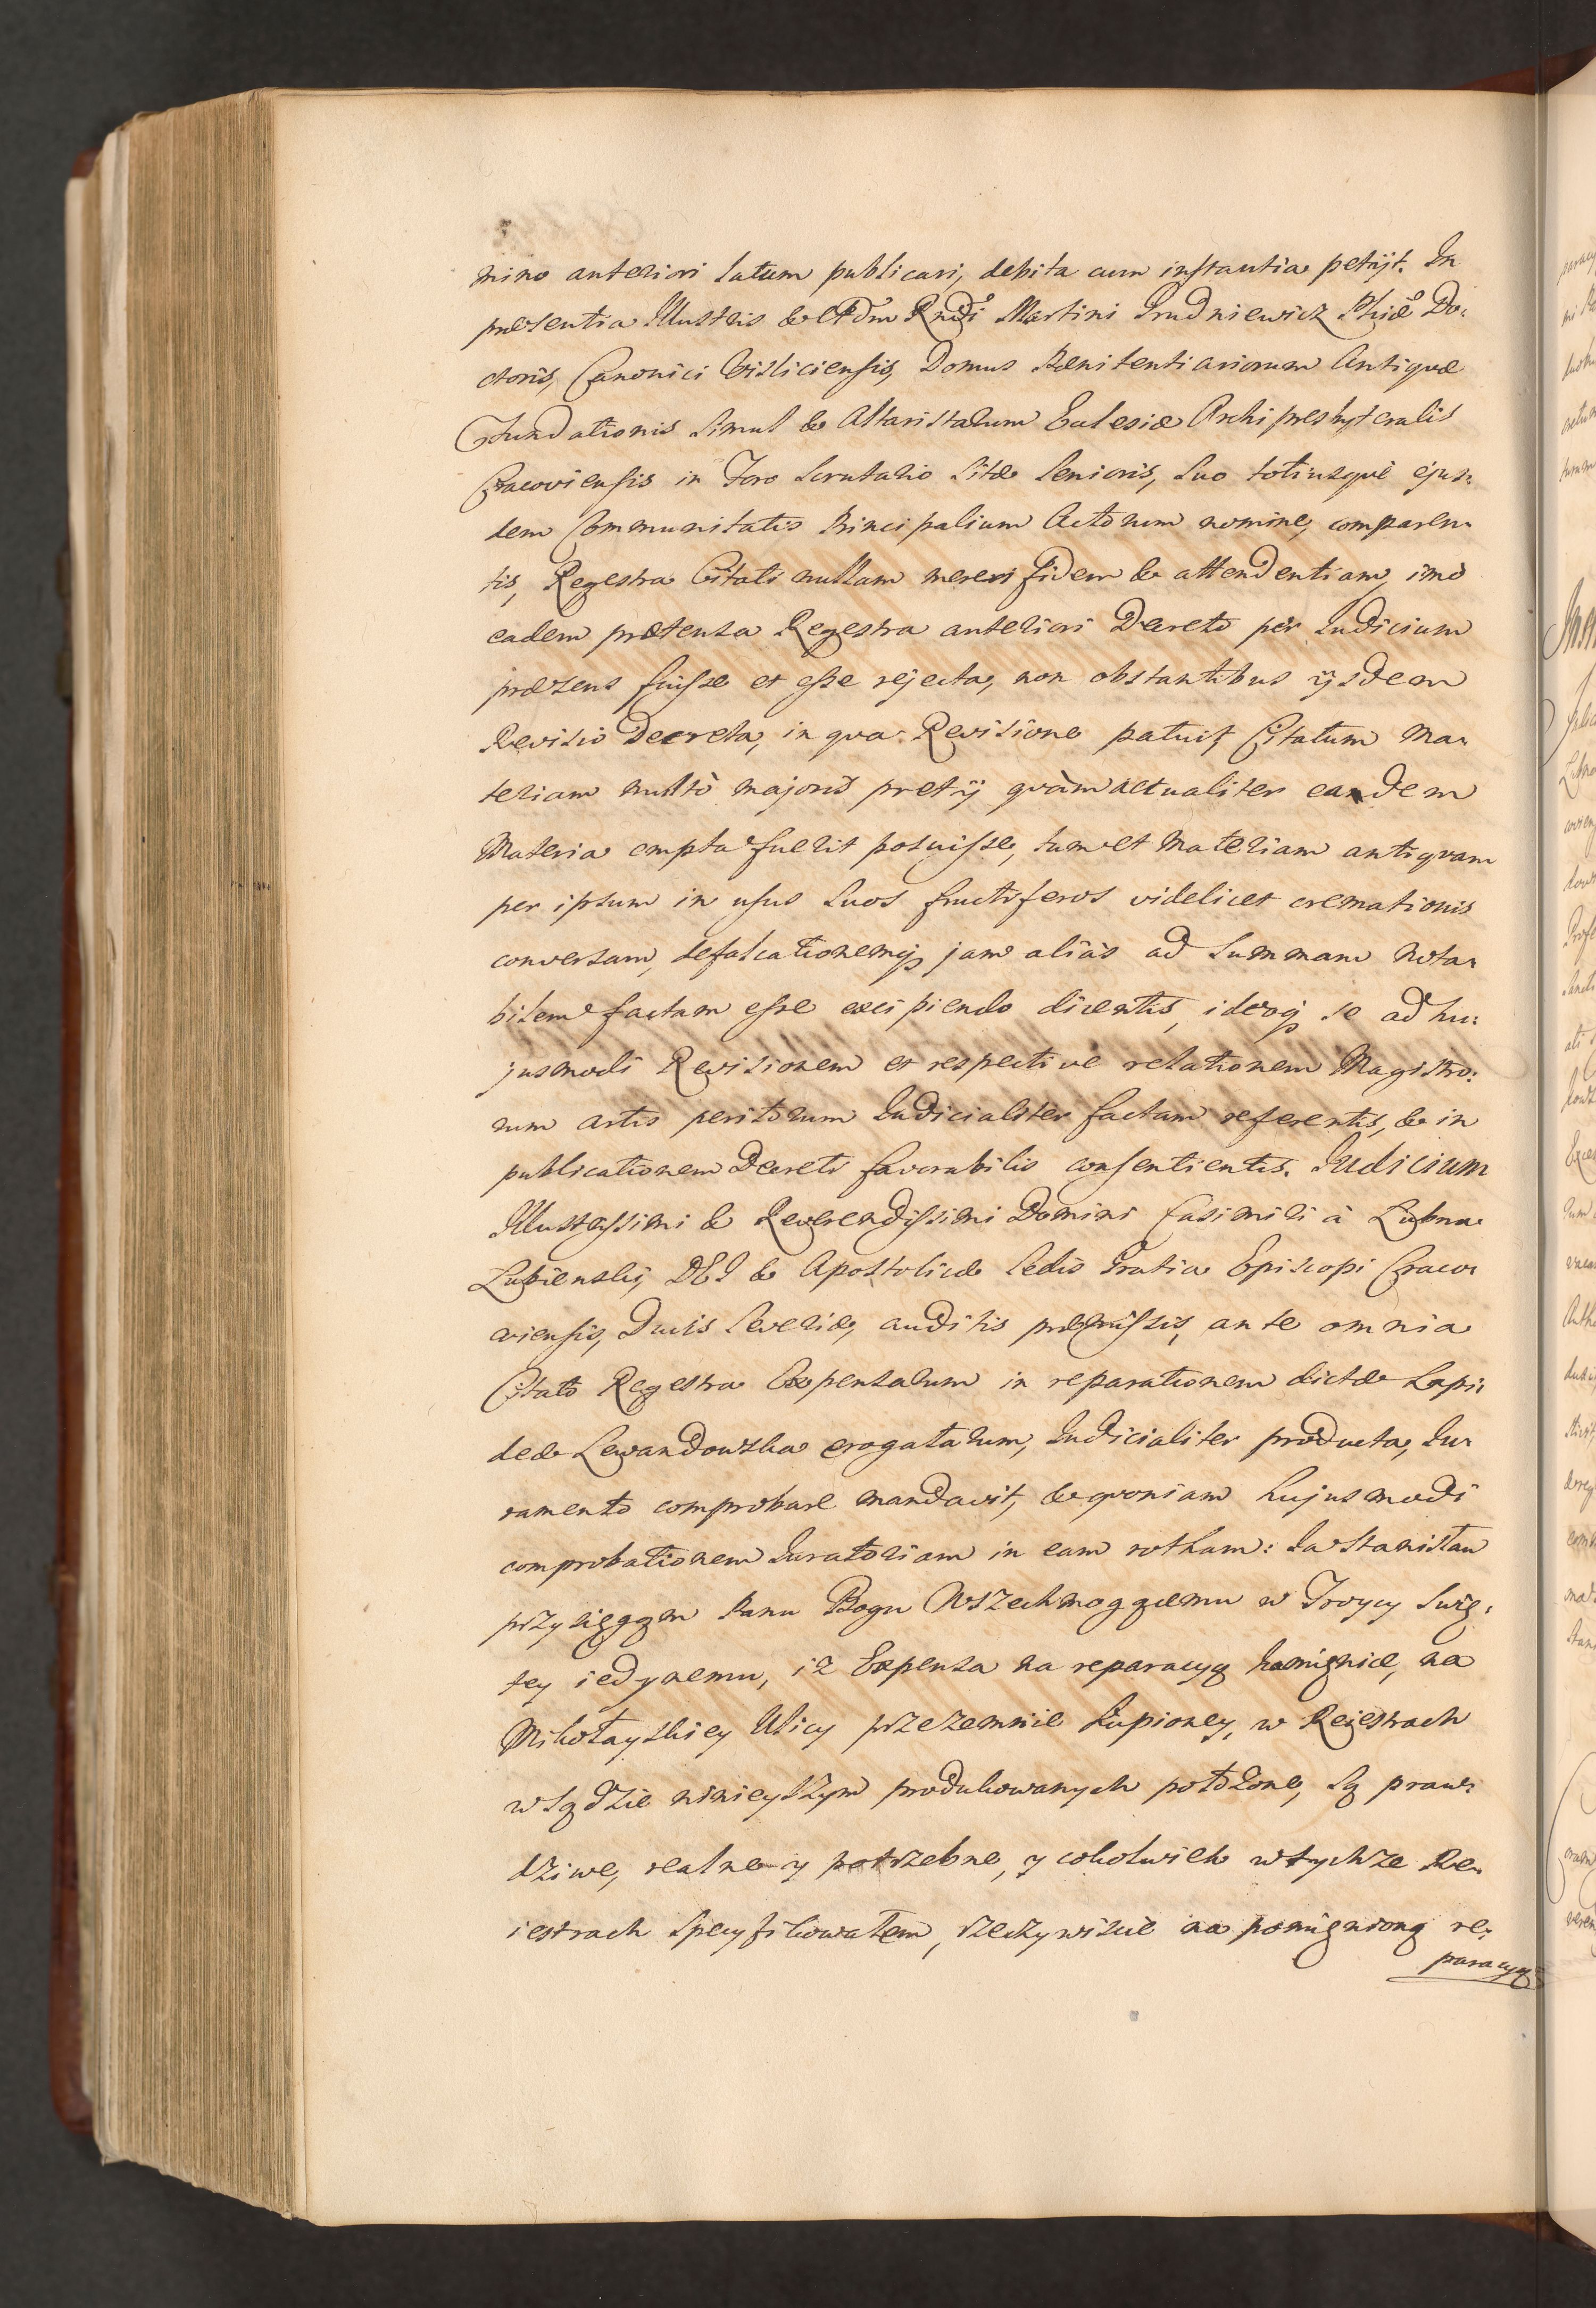 mino anteriori latum publicari, debita cum instantia petijt. In
præsentia Illustris & Adm Rndi Martini Grudniewicz Phiæ Do:
ctoris, Canonici Visliciensis, Domus Pænitentiariorum Antiquæ
Fundationis simul & Altaristarum Ecclesiæ Archipresbyteralis
Cracoviensis in Foro Scrutario Sitæ Senioris, suo totiusque ejus:
dem Communitatis Principalium Actorum nomine, comparen:
tis, Regestra Citati nullam mereri fidem & attendentiam, imò
eadem prætensa Regestra anteriori Decreto per Iudicium
præsens fuisse et esse rejecta, non obstantibus ijsdem
Revisio Decreta, in qva Revisione patuit Citatum Ma:
teriam multò majoris pretij qvàm actualiter eandem
Materia empta fuerit posuisse, tum et Materiam antiqvam
per ipsum in usus suos fructiferos videlicet cremationis
conversam, defalcationemq; jam aliàs ad Summam nota:
bilem factam esse excipiendo dicentis, ideoq; se ad hu:
jusmodi Revisionem et respective relationem Magistro:
rum artis peritorum Iudicialiter factam referentis, & in
publicationem Decreti favorabilis consentientis. Judicium
Illustrissimi & Reverendissimi Domini Casimiri à Lubna
Lubienski, DEI & Apostolicæ Sedis Gratia Episcopi Craco:
viensis, Ducis Severiæ, auditis præmissis, ante omnia
Citato Regestra Expensarum in reparationem dictæ Lapi:
deæ Lewandowska erogatarum, Iudicialiter producta, Iu:
ramento comprobare mandavit, & qvoniam hujusmodi
comprobationem Iuratoriam in eam rotham: Ja Stanisław
przysięgam Panu Bogu Wszechmogącemu w Troycy Swię:
tey iedynemu, iz Expensa na reparacyą kamięnice, na
Mikołayskiey Ulicy przezemnie kupioney, w Reiestrach
w Sądzie ninieyszym produkowanych położone, są praw:
dziwe, realne y potrzebne, y cokolwiek w tychze Re:
iestrach specyfikowałem, rzeczywiscie na pomięnioną re:
paracyą